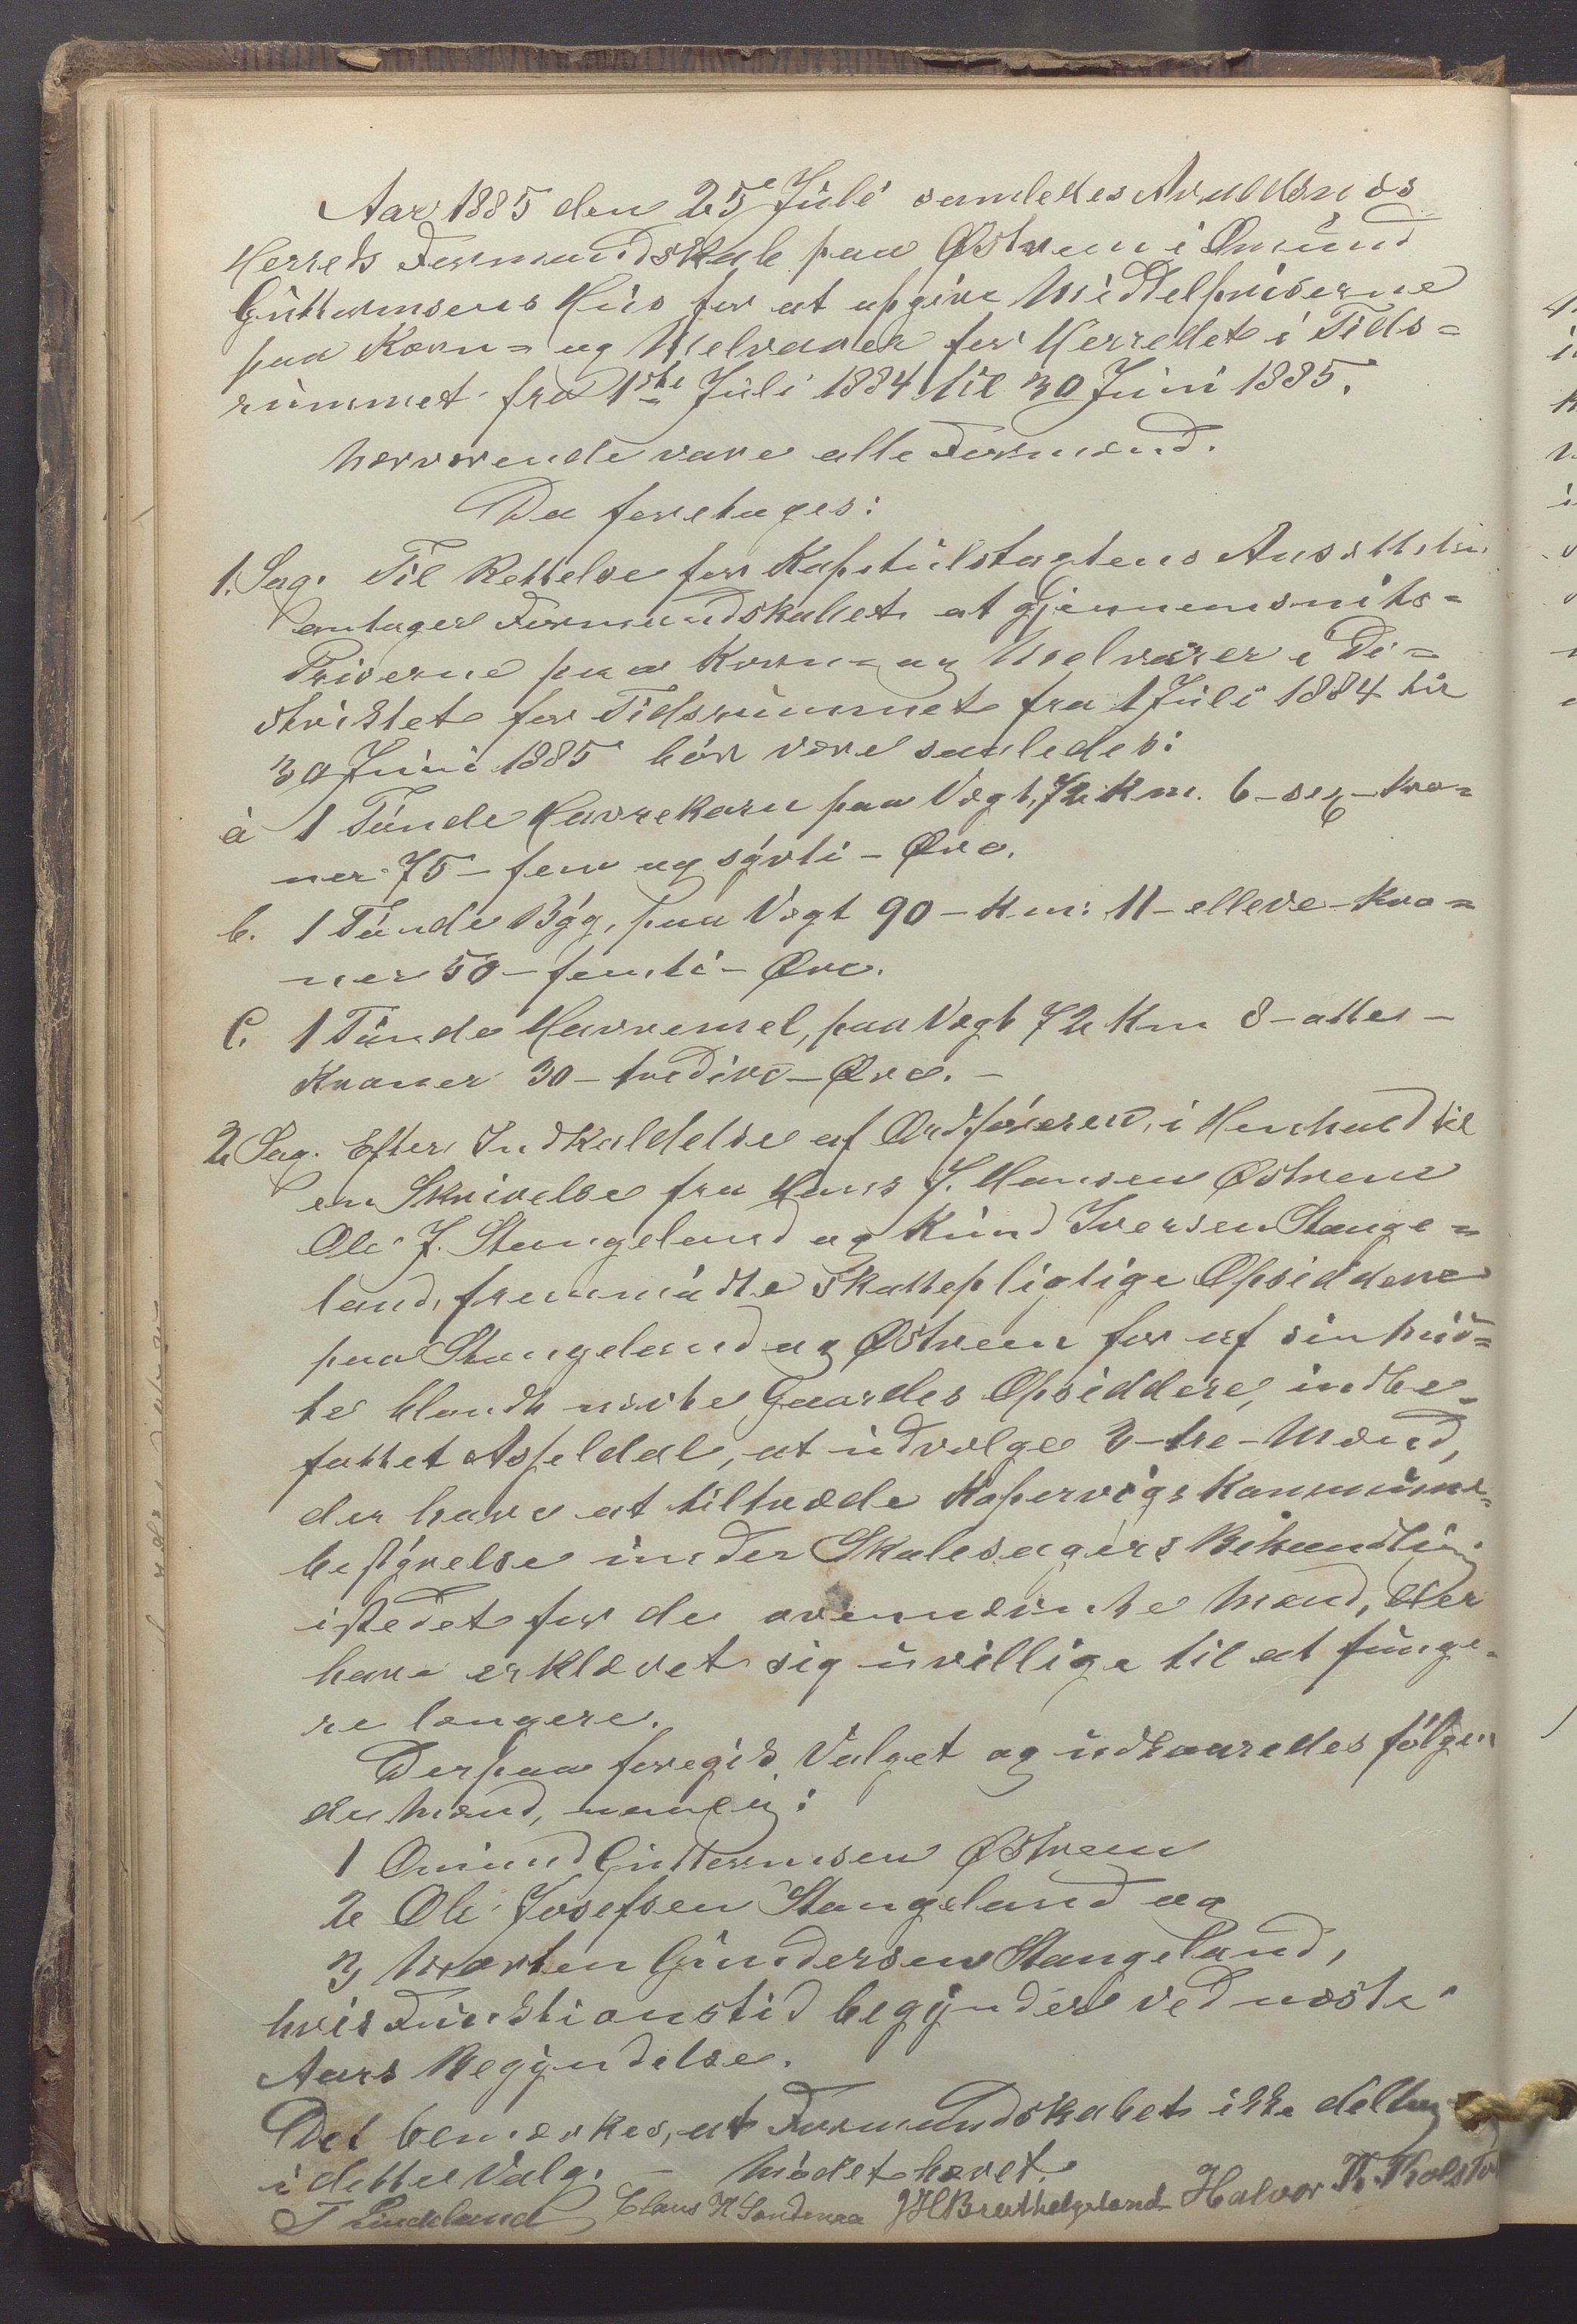 Aar 1885 den 25e Juli samledes Avaldsnæs
Herreds Formandskab paa Østrem i Omund
Guttormsens Hus for at opgive Middelpriserne
paa Korn= og Melvarer for Herredet i Tids=
rummet fra 1ste Juli 1884 til 30 Juni 1885.
Nærværende vare alle Formænd.
Da foretages:
1. Sag. Til Rettelse for Kapitulstagtens Ansættelse
antager Formandskabet at gjennemsnits=
Priserne paa Korn= og Melvarer i Di=
striktet for Tidsrummet fra 1 Juli 1884 til
30 Juni 1885 bör være saaledes:
a 1 Tønde Havrekorn paa Vægt, 72 Km. 6 - sex - kro=
ner 75 - fem og sýtti - Øre.
b. 1 Tønde Býg, paa Vægt 90 - Km: 11 - elleve - Kro=
ner 50 - femti - Øre.
C. 1 Tønde Havremel, paa Vægt 72 Km 8 - atte -
Kroner 30 - tredive - Øre. -
2 Sag. Efter Indkaldelse af Ordføreren, i Henhold til
en Skrivelse fra Hans J. Hansen Østrem
Ole J. Stangeland og Knud Iversen Stange=
land, fremmödte Skattepligtige Opsiddere
paa Stangeland og Østrem for af sin Mid=
te blandt nævnte Gaardes Opsiddere, indbe=
fattet Aspeldal, at udvælge 3 - tre - Mænd,
der have at tiltræde Kopervigs Kommune=
bestýrelse under Skolesagers Behandling
istedet for de ovennævnte Mænd, der
have erklæret sig uvillige til at funge=
re længere.
Derpaa foregik Valget og udkaaredes fölgen
de Mænd, nemlig:
1 Omund Guttormsen Østrem
2 Ole Josefsen Stangeland og
3 Morten Gundersen Stangeland,
hvis Funktionstid begýnder ved næste
Aars Begýndelse.
Det bemærkes, at Formandskabet ikke deltog
i dette Valg. - Mödet hævet.
T Lindeland Claus N Sandnæs JH Bruthelgeland Halvor Th.